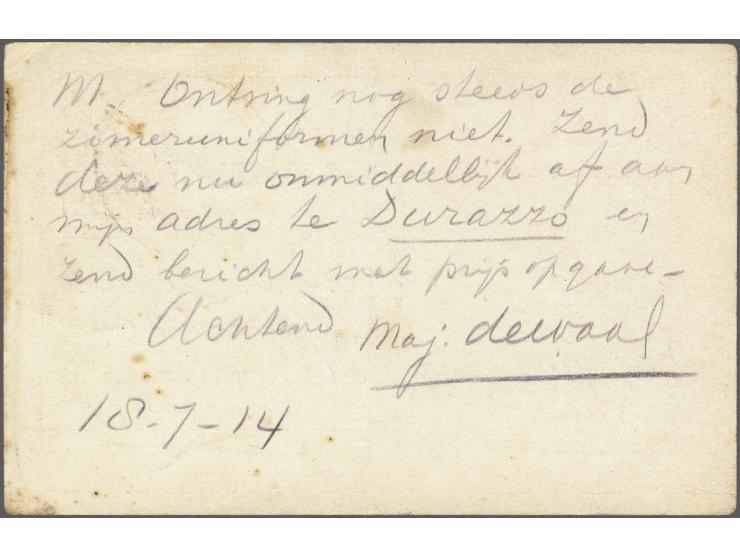 M. Ontving nog steeds de
zomeruniformen niet. Zend
deze nu onmiddellijk af aan
mijn adres te Durazzo en
zend bericht met prijsopgave -
Achtend Maj: dewaal
18-7-14